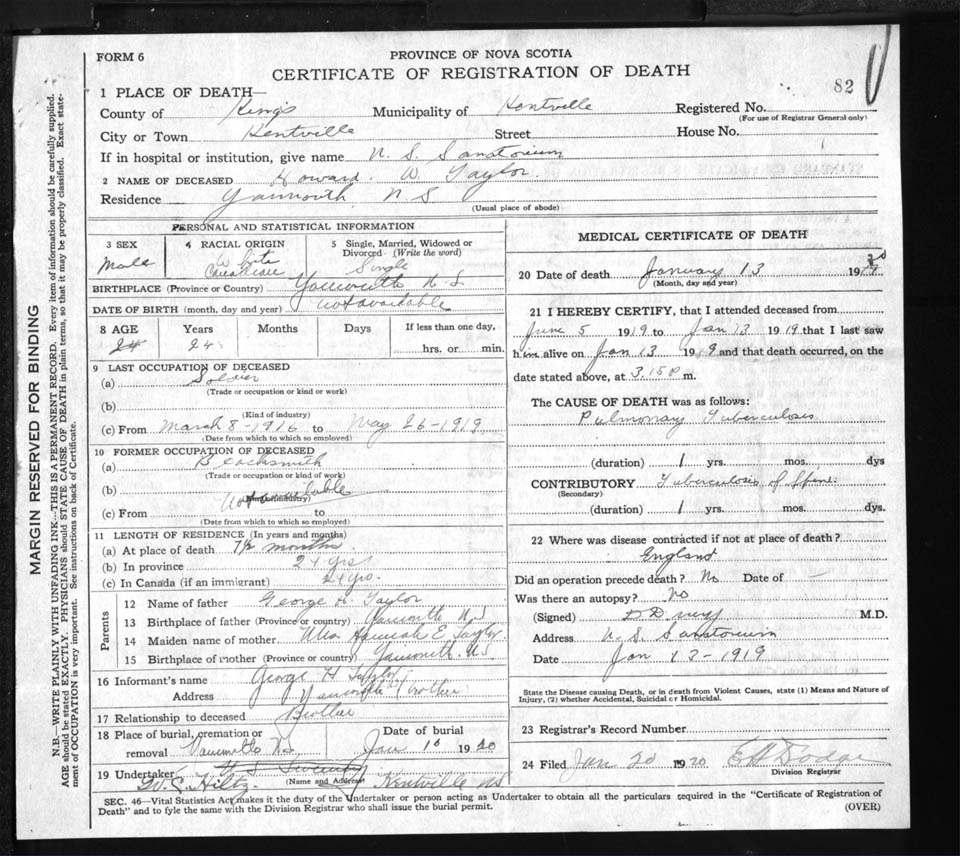 FORM 6
PROVINCE OF NOVA SCOTIA
CERTIFICATE OF REGISTRATION OF DEATH
82
1 PLACE OF DEATH—
County of King's Municipality of Kentville Registered No.
(For use of Registrar General only)
City or Town Kentville Street House No.
If in hospital or institution, give name N. S. Sanatorium
2 NAME OF DECEASED Howard. W. Taylor.
Residence Yarmouth, N S
(Usual place of abode)
PERSONAL AND STATISTICAL INFORMATION
3 SEX
Male
4 RACIAL ORIGIN
White
5 Single, Married, Widowed or Divorced (Write the word)
Single
BIRTHPLACE (Province or Country) Yarmouth, N S
DATE OF BIRTH (month, day and year) not available
8 AGE Years Months Days If less than one day,
24 24 hrs. or min.
9 LAST OCCUPATION OF DECEASED
(a) Soldier
(Trade or occupation or kind or work)
(b)
(Kind of industry)
(c) From March 8-1916 to May 26-1919
(Date from which to which so employed)
10 FORMER OCCUPATION OF DECEASED
(a) Blacksmith
(Trade or occupation or kind of work)
(b) Not available
(c) From to
(Date from which to which so employed)
11 LENGTH OF RESIDENCE (In years and months)
(a) At place of death 7½ months
(b) In province 24 yrs
(c) In Canada (if an immigrant) 24 yrs.
Parents
12 Name of father George H. Taylor
13 Birthplace of father (Province or country) Yarmouth N S
14 Maiden name of mother Hannah E. Taylor
15 Birthplace of mother (Province or country) Yarmouth. N S
16 Informant's name George H Taylor
Address Yarmouth (brother
17 Relationship to deceased Brother
18 Place of burial, cremation or removal Yarmouth NS
Date of burial Jan 16 1920
19 Undertaker H S Sweeney
(Name and Address)
W. E. Hiltz Kentville NS
MEDICAL CERTIFICATE OF DEATH
20 Date of death January 13 19
(Month, day and year)
21 I HEREBY CERTIFY, that I attended deceased from
June 5 1919 to Jan 13 1919 that I last saw
him alive on Jan 13 1919 and that death occurred, on the
date stated above, at 3.15 P m.
The CAUSE OF DEATH was as follows:
Pulmonary Tuberculosis
(duration) 1 yrs. mos. dys
CONTRIBUTORY Tuberculosis of Spine
(Secondary)
(duration) 1 yrs. mos. dys.
22 Where was disease contracted if not at place of death?
England
Did an operation precede death? No Date of —
Was there an autopsy? No
(Signed) M.D.
Address N. S. Sanatorium
Date Jan 13-1919
State the Disease causing Death, or in death from Violent Causes, state (1) Means and Nature of Injury, (2) whether Accidental, Suicidal or Homicidal.
23 Registrar's Record Number
24 Filed Jan 20 1920 E H Dodge
Division Registrar
SEC. 46—Vital Statistics Act, makes it the duty of the Undertaker or person acting as Undertaker to obtain all the particulars required in the "Certificate of Registration of
Death" and to fyle the same with the Division Registrar who shall issue the burial permit.
(OVER)
MARGIN RESERVED FOR BINDING
N.B.—WRITE PLAINLY WITH UNFADING INK—THIS IS A PERMANENT RECORD. Every item of information should be carefully supplied.
AGE should be stated EXACTLY. PHYSICIANS should STATE CAUSE OF DEATH in plain terms, so that it may be properly classified. Exact state-
ment of OCCUPATION is very important. See instructions on back of Certificate.